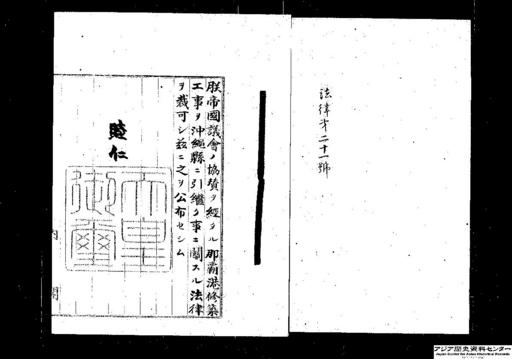 法律才二十一號
朕帝國議會ノ協賛ヲ經タル那覇港修築
工事ヲ沖繩縣ニ引繼ク事ニ關スル法律
ヲ裁可シ茲ニ之ヲ公布セシム
睦仁
天皇
御璽
内
閣
アジア歴史資料センター
Japan Center for Asian Historical Records